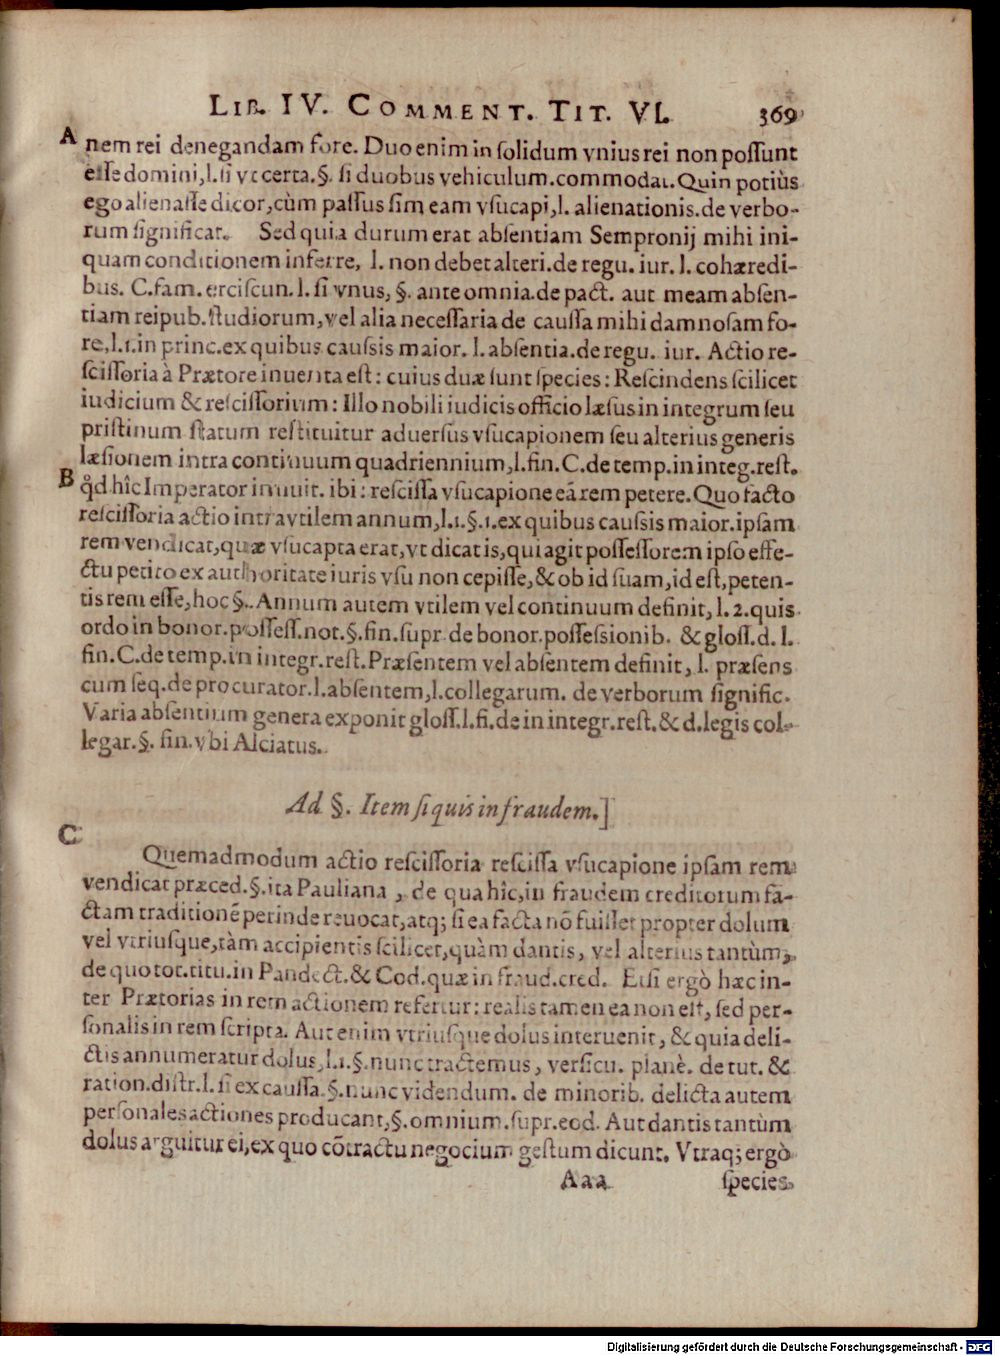 LIB. IV. COMMENT. TIT. VI. 369
A nem rei denegandam fore. Duo enim in solidum vnius rei non possunt
esse domini, l. si vt certa. §. si duobus vehiculum. commodat. Quin potiùs
ego alienasse dicor, cùm passus sim eam vsucapi, l. alienationis. de verbo-
rum significat. Sed quia durum erat absentiam Sempronij mihi ini-
quam conditionem inferre, l. non debet alteri. de regu. iur. l. cohæredi-
bus. C. fam. erciscun. l. si vnus, §. ante omnia. de pact. aut meam absen-
tiam reipub. studiorum, vel alia necessaria de caussa mihi damnosam fo-
re, l. 1. in princ. ex quibus caussis maior. l. absentia. de regu. iur. Actio re-
scissoria à Prætore inuenta est: cuius duæ sunt species: Rescindens scilicet
iudicium & rescissorium: Illo nobili iudicis officio læsus in integrum seu
pristinum statum restituitur aduersus vsucapionem seu alterius generis
læsionem intra continuum quadriennium, l. fin. C. de temp. in integ. rest.
B q̊d hîc Imperator innuit. ibi: rescissa vsucapione eã rem petere. Quo facto
rescissoria actio intra vtilem annum, l. 1. §. 1. ex quibus caussis maior. ipsam
rem vendicat, quæ vsucapta erat, vt dicat is, qui agit possessorem ipso effe-
ctu petito ex authoritate iuris vsu non cepisse, & ob id suam, id est, peten-
tis rem esse, hoc §. Annum autem vtilem vel continuum definit, l. 2. quis
ordo in bonor. possess. not. §. fin. supr. de bonor. possessionib. & gloss. d. l.
fin. C. de temp. in integr. rest. Præsentem vel absentem definit, l. præsens
cum seq. de procurator. l. absentem, l. collegarum. de verborum signific.
Varia absentium genera exponit gloss. l. fi. de in integr. rest. & d. legis col-
legar. §. fin. vbi Alciatus.
Ad §. Item si quis in fraudem.]
C
Quemadmodum actio rescissoria rescissa vsucapione ipsam rem
vendicat præced. §. ita Pauliana, de qua hîc, in fraudem creditorum fa-
ctam traditionẽ perinde reuocat, atq; si ea facta nõ fuisset propter dolum
vel vtriusque, tàm accipientis scilicet, quàm dantis, vel alterius tantùm,
de quo tot. titu. in Pandect. & Cod. quæ in fraud. cred. Etsi ergò hæc in-
ter Prætorias in rem actionem refertur: realis tamen ea non est, sed per-
sonalis in rem scripta. Aut enim vtriusque dolus interuenit, & quia deli-
ctis annumeratur dolus, l. 1. §. nunc tractemus, versicu. planè. de tut. &
ration. distr. l. si ex caussa. §. nunc videndum. de minorib. delicta autem
personales actiones producant, §. omnium. supr. eod. Aut dantis tantùm
dolus arguitur ei, ex quo cõtractu negocium gestum dicunt. Vtraq; ergò
Aaa species
Digitalisierung gefördert durch die Deutsche Forschungsgemeinschaft - DFG